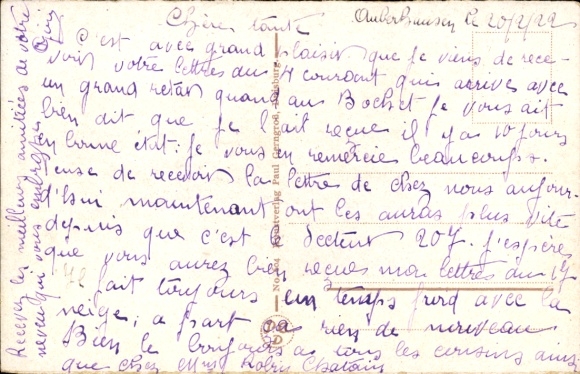 Oberhausen le 20/2/22
Chère tante
C'est avec grand plaisir que je viens de rece-
voir votre lettres du 4 courant qui arrive avec
un grand retar quand au je vous ait
bien dit que je l'ait reçue il y a 10 jours
en bonne état. je vous en remercie beaucoups.
de recevoir la lettre de chez nous aujour-
d'hui maintenant, ont les auras plus vite
depuis que c'est secteur 207. j'espère
que vous aurez bien reçues mon lettres du 17
fait toujours un temps froid avec la
neige, a part ça rien de nouveau
Bien le bonjours a tous les cousins ainsi
que chez
Recevez les meilleurs amitiées de votre
neveu qui vous embrasse
Verlag Paul Gerngros, Duisburg